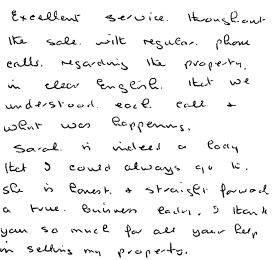 Excellent service throughout
the sale. with regular. phone
calls. regarding the property.
in clear English. that we
understood. each call +
what was happening.
Sarah is indeed a lady
that I could always go to.
she is honest. + straight forward
a true. Business lady, I thank
you so much for all your help
in selling my property.